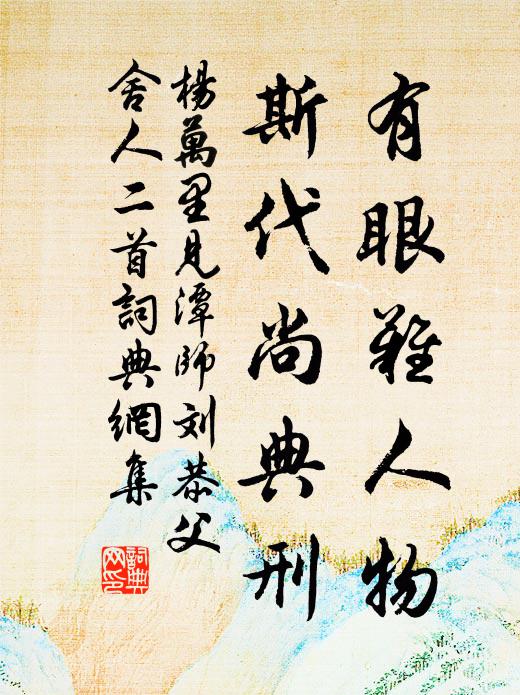 有眼难人物
斯代尚典刑
楊萬里見潭師刘恭父
舍人二首詞典網集
詞典网印